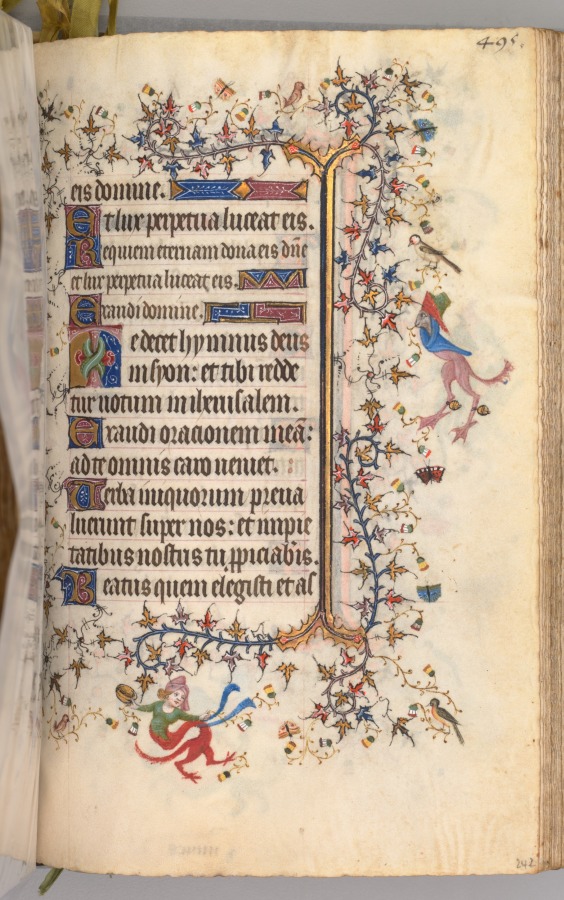 495.
eis domine.
Et lux perpetua luceat eis.
Requiem eternam dona eis dn̄e
et lux perpetua luceat eis.
Exaudi domine.
Te decet hymnus deus
in syon: et tibi redde
tur uotum in iherusalem.
Exaudi oracionem meā:
ad te omnis caro ueniet.
Uerba iniquorum preua
luerunt super nos: et impie
tatibus nostris tu ꝓpiciabis.
Beatus quem elegisti et as
242